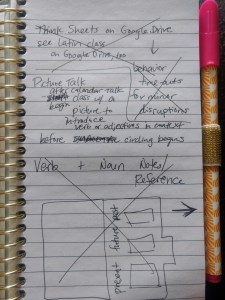 Think Sheets on Google Drive
see Latin class
on Google Drive, too
behavior
time outs
for minor
disruptions
Picture Talk
after calendar talk
start class w/ a
begin
picture to
introduce
verb or adjectives in context
before circling begins
Verb + Noun Notes/
Reference
past
future
present